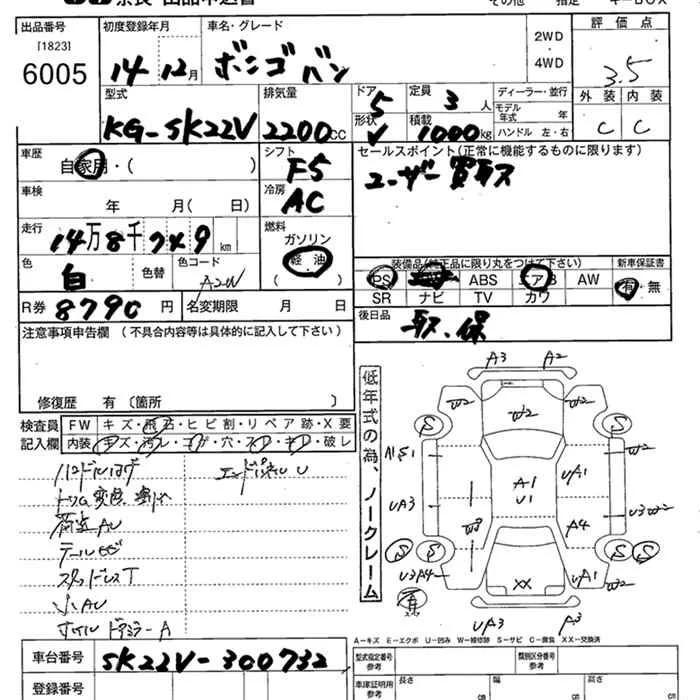 出品番号 初度登録年月 車名・グレード 2WD ・ 4WD 評価点
[1823]
6005 14年12月 ボンゴ バン 3.5
型式 排気量 ドア 5 定員 3 人 ディーラー・並行 外装 内装
KG-SK22V 2200cc 形状 V 積載 1000kg モデル年式 年 C C
ハンドル 左・右
車歴 シフト セールスポイント(正常に機能するものに限ります)
自家用・( ) F5 ユーザー買取
車検 冷房
年 月( 日) AC
走行 燃料
14万8千749km ガソリン
色 色替 色コード 軽・油 装備品(純正品に限り丸をつけて下さい) 新車保証書
白 A2W ( ) PS ABS エアB AW 有・無
R券 8790円 名変期限 月 日 SR ナビ TV カワ
注意事項申告欄 (不具合内容等は具体的に記入して下さい) 後日品 取、保
修復歴 有 〔箇所 〕
検査員 FW キズ・飛石・ヒビ割・リペア跡・X要
記入欄 内装 キズ・汚レ・コゲ・穴・スレ・キレ・破レ
ハンドルハゲ エンドパネルU
荷台AU
スタッドレスT
小AU
低年式の為、ノークレーム
A3 A2
W2 W2 W2
S S
A1S1 W2
A1 U1 UA1
UA3 U3W2
W3 A4
S S S S
U3A4 XX UA1 W2
UA3 A3
A-キズ E-エクボ U-凹み W-補修跡 S-サビ C-腐食 XX-交換済
車台番号 SK22V-300732 型式指定番号 参考 類別区分番号 参考
登録番号 車庫証明用 参考 長さ cm 幅 cm 高さ cm